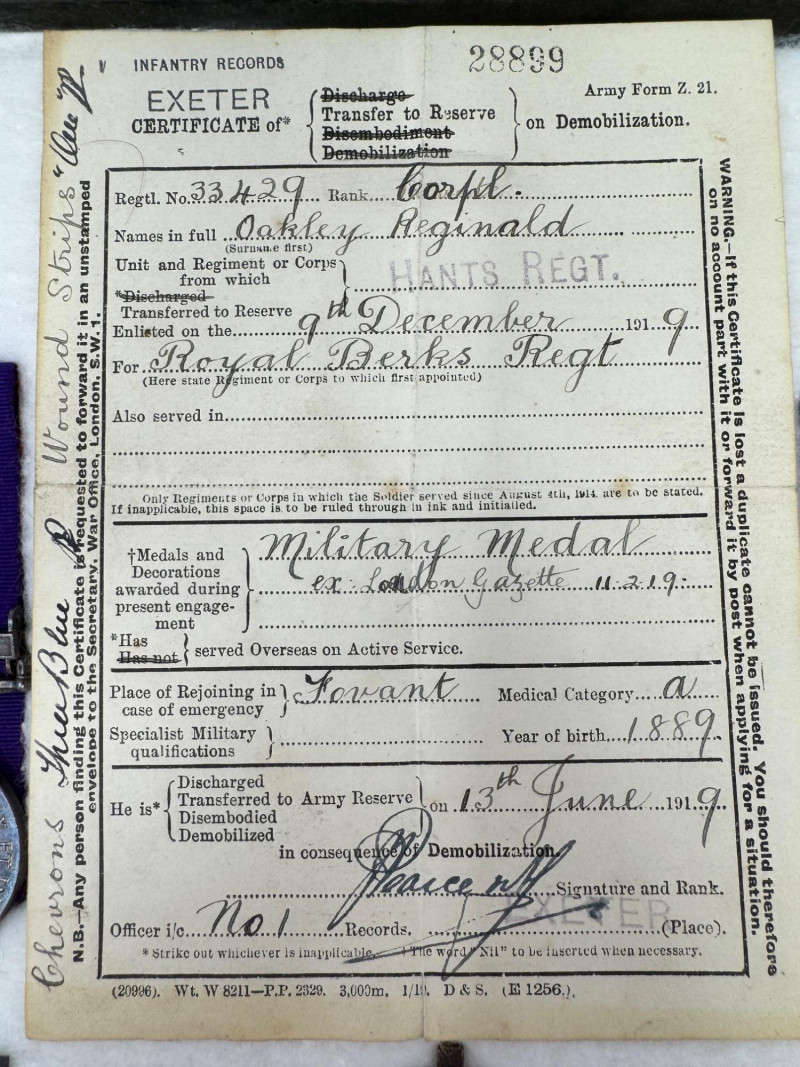 INFANTRY RECORDS
28899
Army Form Z. 21.
EXETER
CERTIFICATE of*
Discharge
Transfer to Reserve
Disembodiment
Demobilization
on Demobilization.
Regtl. No. 33429 Rank Corpl.
Names in full Oakley Reginald
(Surname first)
Unit and Regiment or Corps
from which
HANTS REGT.
*Discharged
Transferred to Reserve
Enlisted on the 9th December 1919
For Royal Berks Regt
(Here state Regiment or Corps to which first appointed)
Also served in
Only Regiments or Corps in which the Soldier served since August 4th, 1914, are to be stated.
If inapplicable, this space is to be ruled through in ink and initialled.
†Medals and
Decorations
awarded during
present engage-
ment
Military Medal
ex London Gazette 11.2.19.
*Has
Has not
served Overseas on Active Service.
Place of Rejoining in
case of emergency
Fovant Medical Category a
Specialist Military
qualifications
Year of birth 1889
He is*
Discharged
Transferred to Army Reserve
Disembodied
Demobilized
on 13th June 1919
in consequence of Demobilization.
Signature and Rank.
Officer i/c No 1 Records. EXETER (Place).
* Strike out whichever is inapplicable. † The word "Nil" to be inserted when necessary.
(20996). Wt. W 8211—P.P. 2329. 3,000m. 1/19. D & S. (E 1256.).
Chevrons Blue Wound Strips One
N.B.—Any person finding this Certificate is requested to forward it in an unstamped
envelope to the Secretary, War Office, London, S.W. 1.
WARNING.—If this Certificate is lost a duplicate cannot be issued. You should therefore
on no account part with it or forward it by post when applying for a situation.